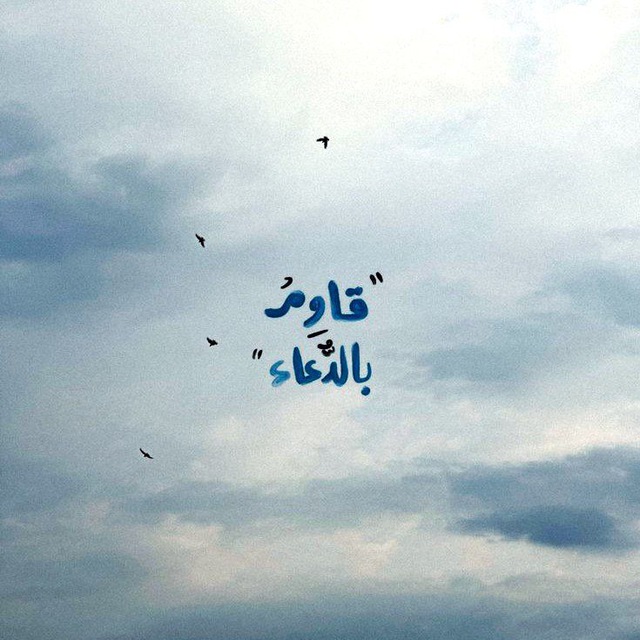 "قاوِمُ
بالدُّعاء"